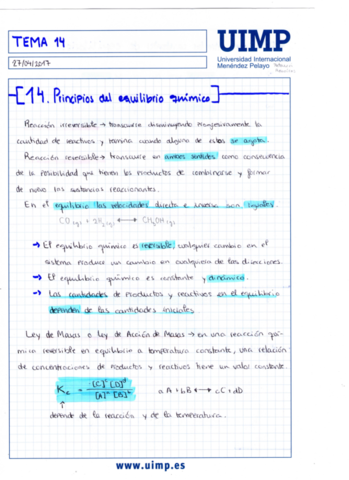 TEMA 14
UIMP
27/04/2017
Universidad Internacional
Menéndez Pelayo
14. Principios del equilibrio químico
Reacción irreversible → transcurre disminuyendo progresivamente la
cantidad de reactivos y termina cuando alguno de estos se agota.
Reacción reversible → transcurre en ambos sentidos como consecuencia
de la posibilidad que tienen los productos de combinarse y formar
de nuevo las sustancias reaccionantes.
En el equilibrio las velocidades directa e inversa son iguales.
CO(g) + 2H₂(g) ⟷ CH₃OH(g)
→ El equilibrio químico es reversible, cualquier cambio en el
sistema produce un cambio en cualquiera de las direcciones.
→ El equilibrio químico es constante y dinámico.
→ Las cantidades de productos y reactivos en el equilibrio
dependen de las cantidades iniciales.
Ley de Masas o Ley de Acción de Masas → en una reacción quí-
mica reversible en equilibrio a temperatura constante, una relación
de concentraciones de productos y reactivos tiene un valor constante.
Kc = [C]ᶜ [D]ᵈ / [A]ᵃ [B]ᵇ aA + bB ⟷ cC + dD
depende de la reacción y de la temperatura.
www.uimp.es